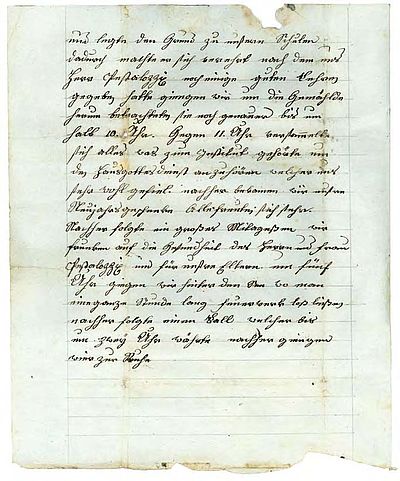 und legte den Grund zu unsern Schulen
dadurch machte er sich verehrt nach dem uns
Herr Pestalozzi noch einige guten Lehren
gegeben hatte giengen wir um die Gemählde
herum betrachteten sie noch genauer bis um
halb 10. Uhr. Gegen 11. Uhr versammelte
sich alles was zum Institut gehörte um
den Hausgottesdienst anzuhören welcher uns
sehr wohl gefiel nachher bekamen wir unsre
Neujahrsgeschenke Alle freuten sich sehr.
Nachher folgte ein großes Mitageßen wir
tranken auf die Gesundheit des Herrn und Frau
Pestalozzi und für unsre Eltern um fünf
Uhr giengen wir hinter den See wo man
eine ganze Stunde lang Feuerwerk loß ließen
nachher folgte einen Ball welcher bis
um zwey Uhr währte nachher giengen
wir zur Ruhe